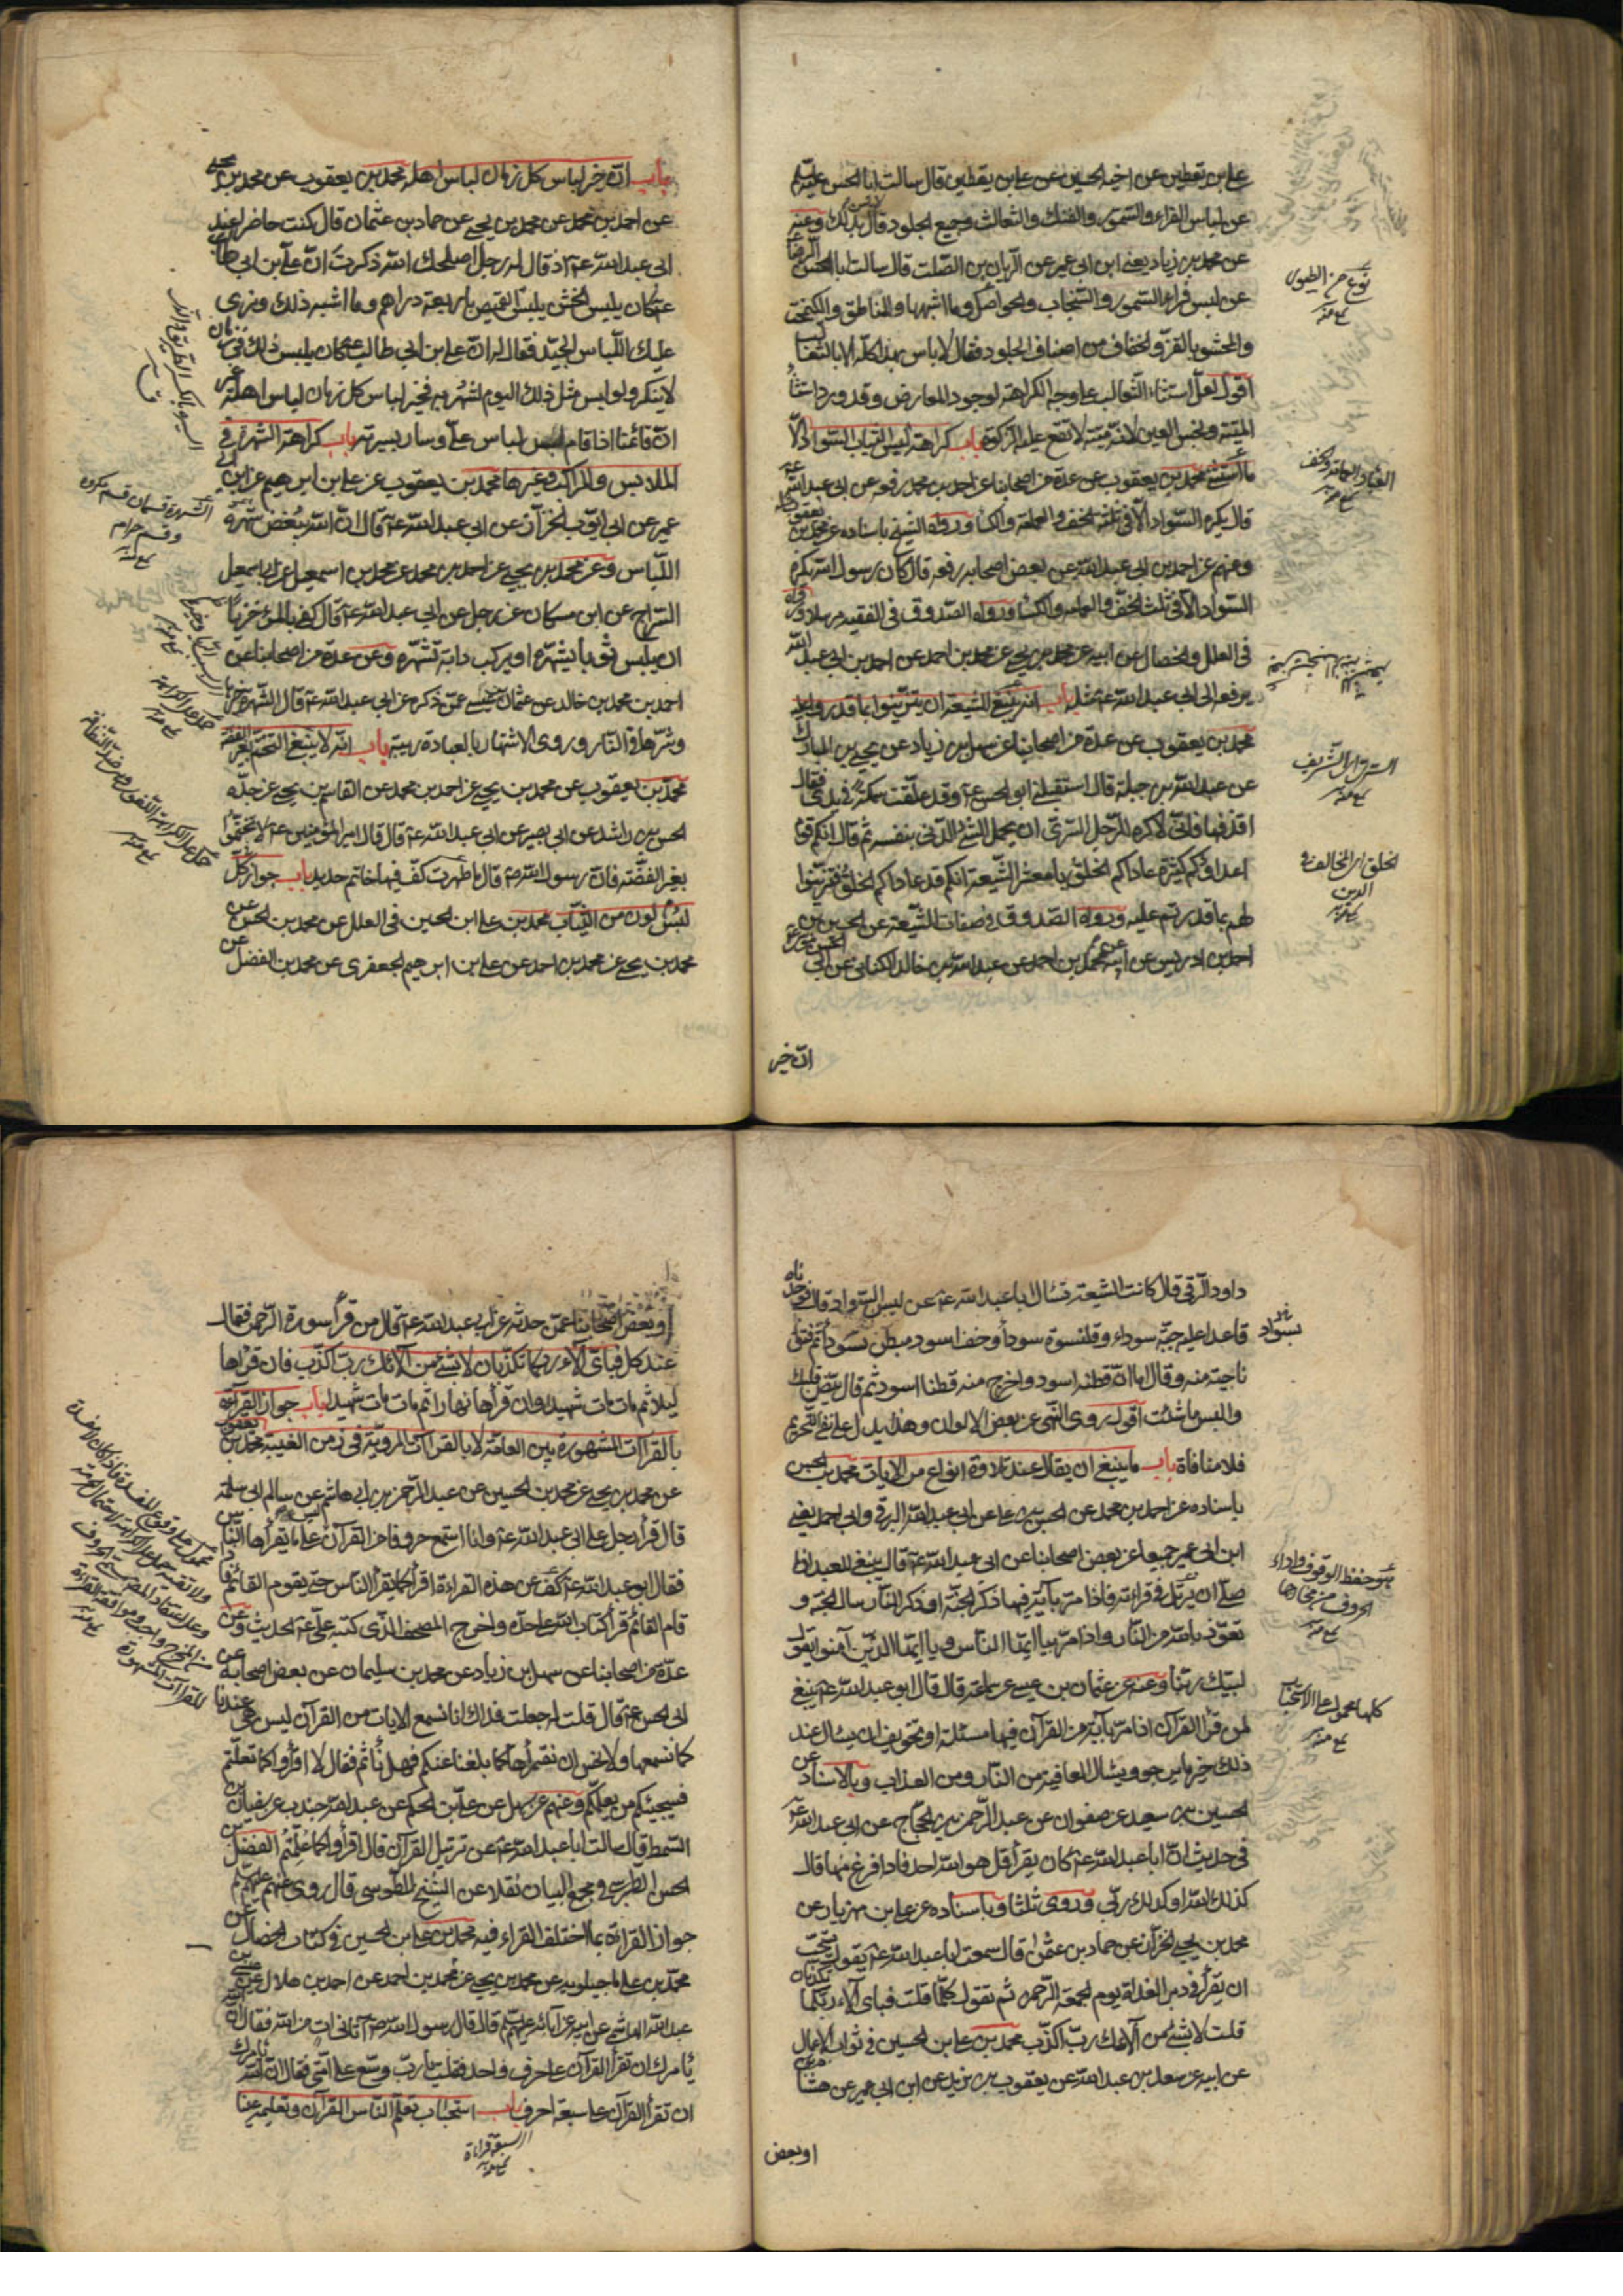 علي بن يقطين عن اخيه الحسين عن علي بن يقطين قال سالت ابا الحسن عليه
عن لباس الفراء والسمور والفنك والثعالب وجميع الجلود قال لا باس بذلك وعنه
عن محمد بن زياد يعني ابن ابي عمير عن الريان بن الصلت قال سالت ابا الحسن الرضا
عن لبس فراء السمور والسنجاب والحواصل وما اشبهها والمناطق والكيمخت
والمحشو بالقز والخفاف من اصناف الجلود فقال لا باس بهذا كله الا بالثعالب
اقول لعل استثناء الثعالب على وجه الكراهة لوجود المعارض وقد ورد استثناء
الميتة ونجس العين لانه ميتة لا تقع عليه الزكوة باب كراهة لبس الثياب السود الا
ما استثني محمد بن يعقوب عن عدة من اصحابنا عن احمد بن محمد رفعه عن ابي عبد الله عـ
قال يكره السواد الا في ثلثة الخف والعمامة والكساء ورواه الشيخ باسناده عن محمد بن يعقوب
وعنهم عن احمد بن ابي عبد الله عن بعض اصحابه رفعه قال كان رسول الله يكره
السواد الا في ثلث الخف والعمامة والكساء ورواه الصدوق في الفقيه مرسلا ورواه
في العلل والخصال عن ابيه عن محمد بن يحيى عن محمد بن احمد عن احمد بن ابي عبد الله
يرفعه الى ابي عبد الله عـ مثله باب انه ينبغي للشيعة ان يتزينوا بما قدروا عليه
محمد بن يعقوب عن عدة من اصحابنا عن سهل بن زياد عن يحيى بن المبارك
عن عبد الله بن جبلة قال استقبلني ابو الحسن عـ وقد علقت سمكة في يدي فقال
اقذفها فاني لاكره للرجل السري ان يحمل الشئ الدني بنفسه ثم قال انكم قوم
اعداؤكم كثيرة عاداكم الخلق يا معشر الشيعة انكم قد عاداكم الخلق فتزينوا
لهم بما قدرتم عليه ورواه الصدوق في صفات الشيعة عن الحسين بن
احمد بن ادريس عن ابيه عن محمد بن احمد عن عبد الله بن خالد الكناني عن ابي الحسن
ان خير
نوع من الطيور
السري اي الشريف
الخلق اي المخالف في
الدين
باب ان خير لباس كل زمان لباس اهله محمد بن يعقوب عن محمد بن يحيى
عن احمد بن محمد عن محمد بن يحيى عن حماد بن عثمان قال كنت حاضرا عند
ابي عبد الله عـ اذ قال له رجل اصلحك الله ذكرت ان علي بن ابي طالب
عـ كان يلبس الخشن يلبس القميص باربعة دراهم وما اشبه ذلك ونرى
عليك اللباس الجيد فقال له ان علي بن ابي طالب عـ كان يلبس ذلك في زمان
لا ينكر ولو لبس مثل ذلك اليوم لشهر به فخير لباس كل زمان لباس اهله غير
ان قائمنا اذا قام لبس لباس علي وسار بسيرته باب كراهة الشهرة في
الملابس والمراكب وغيرها محمد بن يعقوب عن علي بن ابرهيم عن ابن ابي
عمير عن ابي ايوب الخزاز عن ابي عبد الله عـ قال ان الله يبغض شهرة
اللباس وعن محمد بن يحيى عن احمد بن محمد عن محمد بن اسمعيل عن ابي اسمعيل
السراج عن ابن مسكان عن رجل عن ابي عبد الله عـ قال كفى بالمرء خزيا
ان يلبس ثوبا يشهره او يركب دابة تشهره وعن عدة من اصحابنا عن
احمد بن محمد بن خالد عن عثمان بن عيسى عمن ذكره عن ابي عبد الله عـ قال الشهرة خيرها
وشرها في النار وروى الاشتهار بالعبادة ريبة باب انه لا ينبغي التختم بغير الفضة
محمد بن يعقوب عن محمد بن يحيى عن احمد بن محمد عن القاسم بن يحيى عن جده
الحسن بن راشد عن ابي بصير عن ابي عبد الله عـ قال قال امير المؤمنين عـ لا تختموا
بغير الفضة فان رسول الله ص قال ما طهرت كف فيها خاتم حديد باب جواز كل
لبس لون من الثياب محمد بن علي ابن الحسين في العلل عن محمد بن الحسن عن
محمد بن يحيى عن محمد بن احمد عن علي بن ابرهيم الجعفري عن محمد بن الفضل عن
الشهرة قسمان قسم مكروه
وقسم حرام
داود الرقي قال كانت الشيعة تسال ابا عبد الله عـ عن لبس السواد قال فوجدناه
قاعدا عليه جبة سوداء وقلنسوة سودا وخف اسود مبطن بسواد ثم فتق
ناحية منه وقال اما ان قطنه اسود واخرج منه قطنا اسود ثم قال بيض قلبك
والبس ما شئت اقول روى النهي عن بعض الالوان وهذا يدل على نفي التحريم
فلا منافاة باب ما ينبغي ان يقال عند تلاوة انواع من الايات محمد بن الحسن
باسناده عن احمد بن محمد عن الحسن بن علي عن ابي عبد الله البرقي وابي احمد يعني
ابن ابي عمير جميعا عن بعض اصحابنا عن ابي عبد الله عـ قال ينبغي للعبد اذا
صلى ان يرتل في قراءته فاذا مر بآية فيها ذكر الجنة او ذكر النار سال الجنة و
تعوذ بالله من النار واذا مر بيا ايها الناس ويا ايها الذين آمنوا يقول
لبيك ربنا وعنه عن عثمان بن عيسى عن سماعة قال قال ابو عبد الله عـ ينبغي
لمن قرأ القرآن اذا مر بآية من القرآن فيها مسئلة او تخويف ان يسال عند
ذلك خير ما يرجو ويسال العافية من النار ومن العذاب وبالاسناد عن
الحسين بن سعيد عن صفوان عن عبد الرحمن بن الحجاج عن ابي عبد الله عـ
في حديث ان ابا عبد الله عـ كان يقرأ قل هو الله احد فاذا فرغ منها قال
كذلك الله او كذلك ربي وروى ثلثا وباسناده عن علي بن مهزيار عن
محمد بن يحيى الخزاز عن حماد بن عثمان قال سمعت ابا عبد الله عـ يقول يستحب
ان يقرأ في دبر الغداة يوم الجمعة الرحمن ثم تقول كلما قلت فباي آلاء ربكما تكذبان
قلت لا بشئ من آلائك رب اكذب محمد بن علي بن الحسين في ثواب الاعمال
عن ابيه عن سعد بن عبد الله عن يعقوب بن يزيد عن ابن ابي عمير عن هشام
او بعض
بسواد
هو حفظ الوقوف واداء
الحروف من مخارجها
كلها محمول على الاستحباب
او بعض اصحابنا عمن حدثه عن ابي عبد الله عـ قال من قرأ سورة الرحمن فقال
عند كل فباي آلاء ربكما تكذبان لا بشئ من آلائك رب اكذب فان قراها
ليلا ثم مات مات شهيدا وان قرأها نهارا ثم مات مات شهيدا باب جواز القراءة
بالقراآت المشهورة بين العامة لا بالقراآت المروية في زمن الغيبة محمد بن يعقوب
عن محمد بن يحيى عن محمد بن الحسين عن عبد الرحمن بن ابي هاشم عن سالم ابي سلمة
قال قرأ رجل على ابي عبد الله عـ وانا استمع حروفا من القرآن ليس على ما يقرأها الناس
فقال ابو عبد الله عـ كف عن هذه القراءة اقرأ كما يقرأ الناس حتى يقوم القائم فاذا
قام القائم قرأ كتاب الله على حده واخرج المصحف الذي كتبه علي عـ الحديث وعن
عدة من اصحابنا عن سهل بن زياد عن محمد بن سليمان عن بعض اصحابه عن
ابي الحسن عـ قال قلت له جعلت فداك انا نسمع الايات من القرآن ليس هي عندنا
كما نسمعها ولا نحسن ان نقرأها كما بلغنا عنكم فهل نأثم فقال لا اقرؤا كما تعلمتم
فسيجيئكم من يعلمكم وعنهم عن سهل عن علي بن الحكم عن عبد الله بن جندب عن سفيان بن
السمط قال سالت ابا عبد الله عـ عن ترتيل القرآن قال اقرأوا كما علمتم الفضل بن
الحسن الطبرسي في مجمع البيان نقلا عن الشيخ الطوسي قال روى عنهم عليهم
جواز القراءة بما اختلف القراء فيه محمد بن علي بن الحسين في كتاب الخصال عن
محمد بن علي ماجيلويه عن محمد بن يحيى عن محمد بن احمد عن احمد بن هلال عن عيسى بن
عبد الله الهاشمي عن ابيه عن آبائه عليهم قال قال رسول الله ص اتاني آت من الله فقال ان الله
يأمرك ان تقرأ القرآن على حرف واحد فقلت يا رب وسع على امتي فقال ان الله يأمرك
ان تقرأ القرآن على سبعة احرف باب استحباب تعلم الناس القرآن وتعليمه